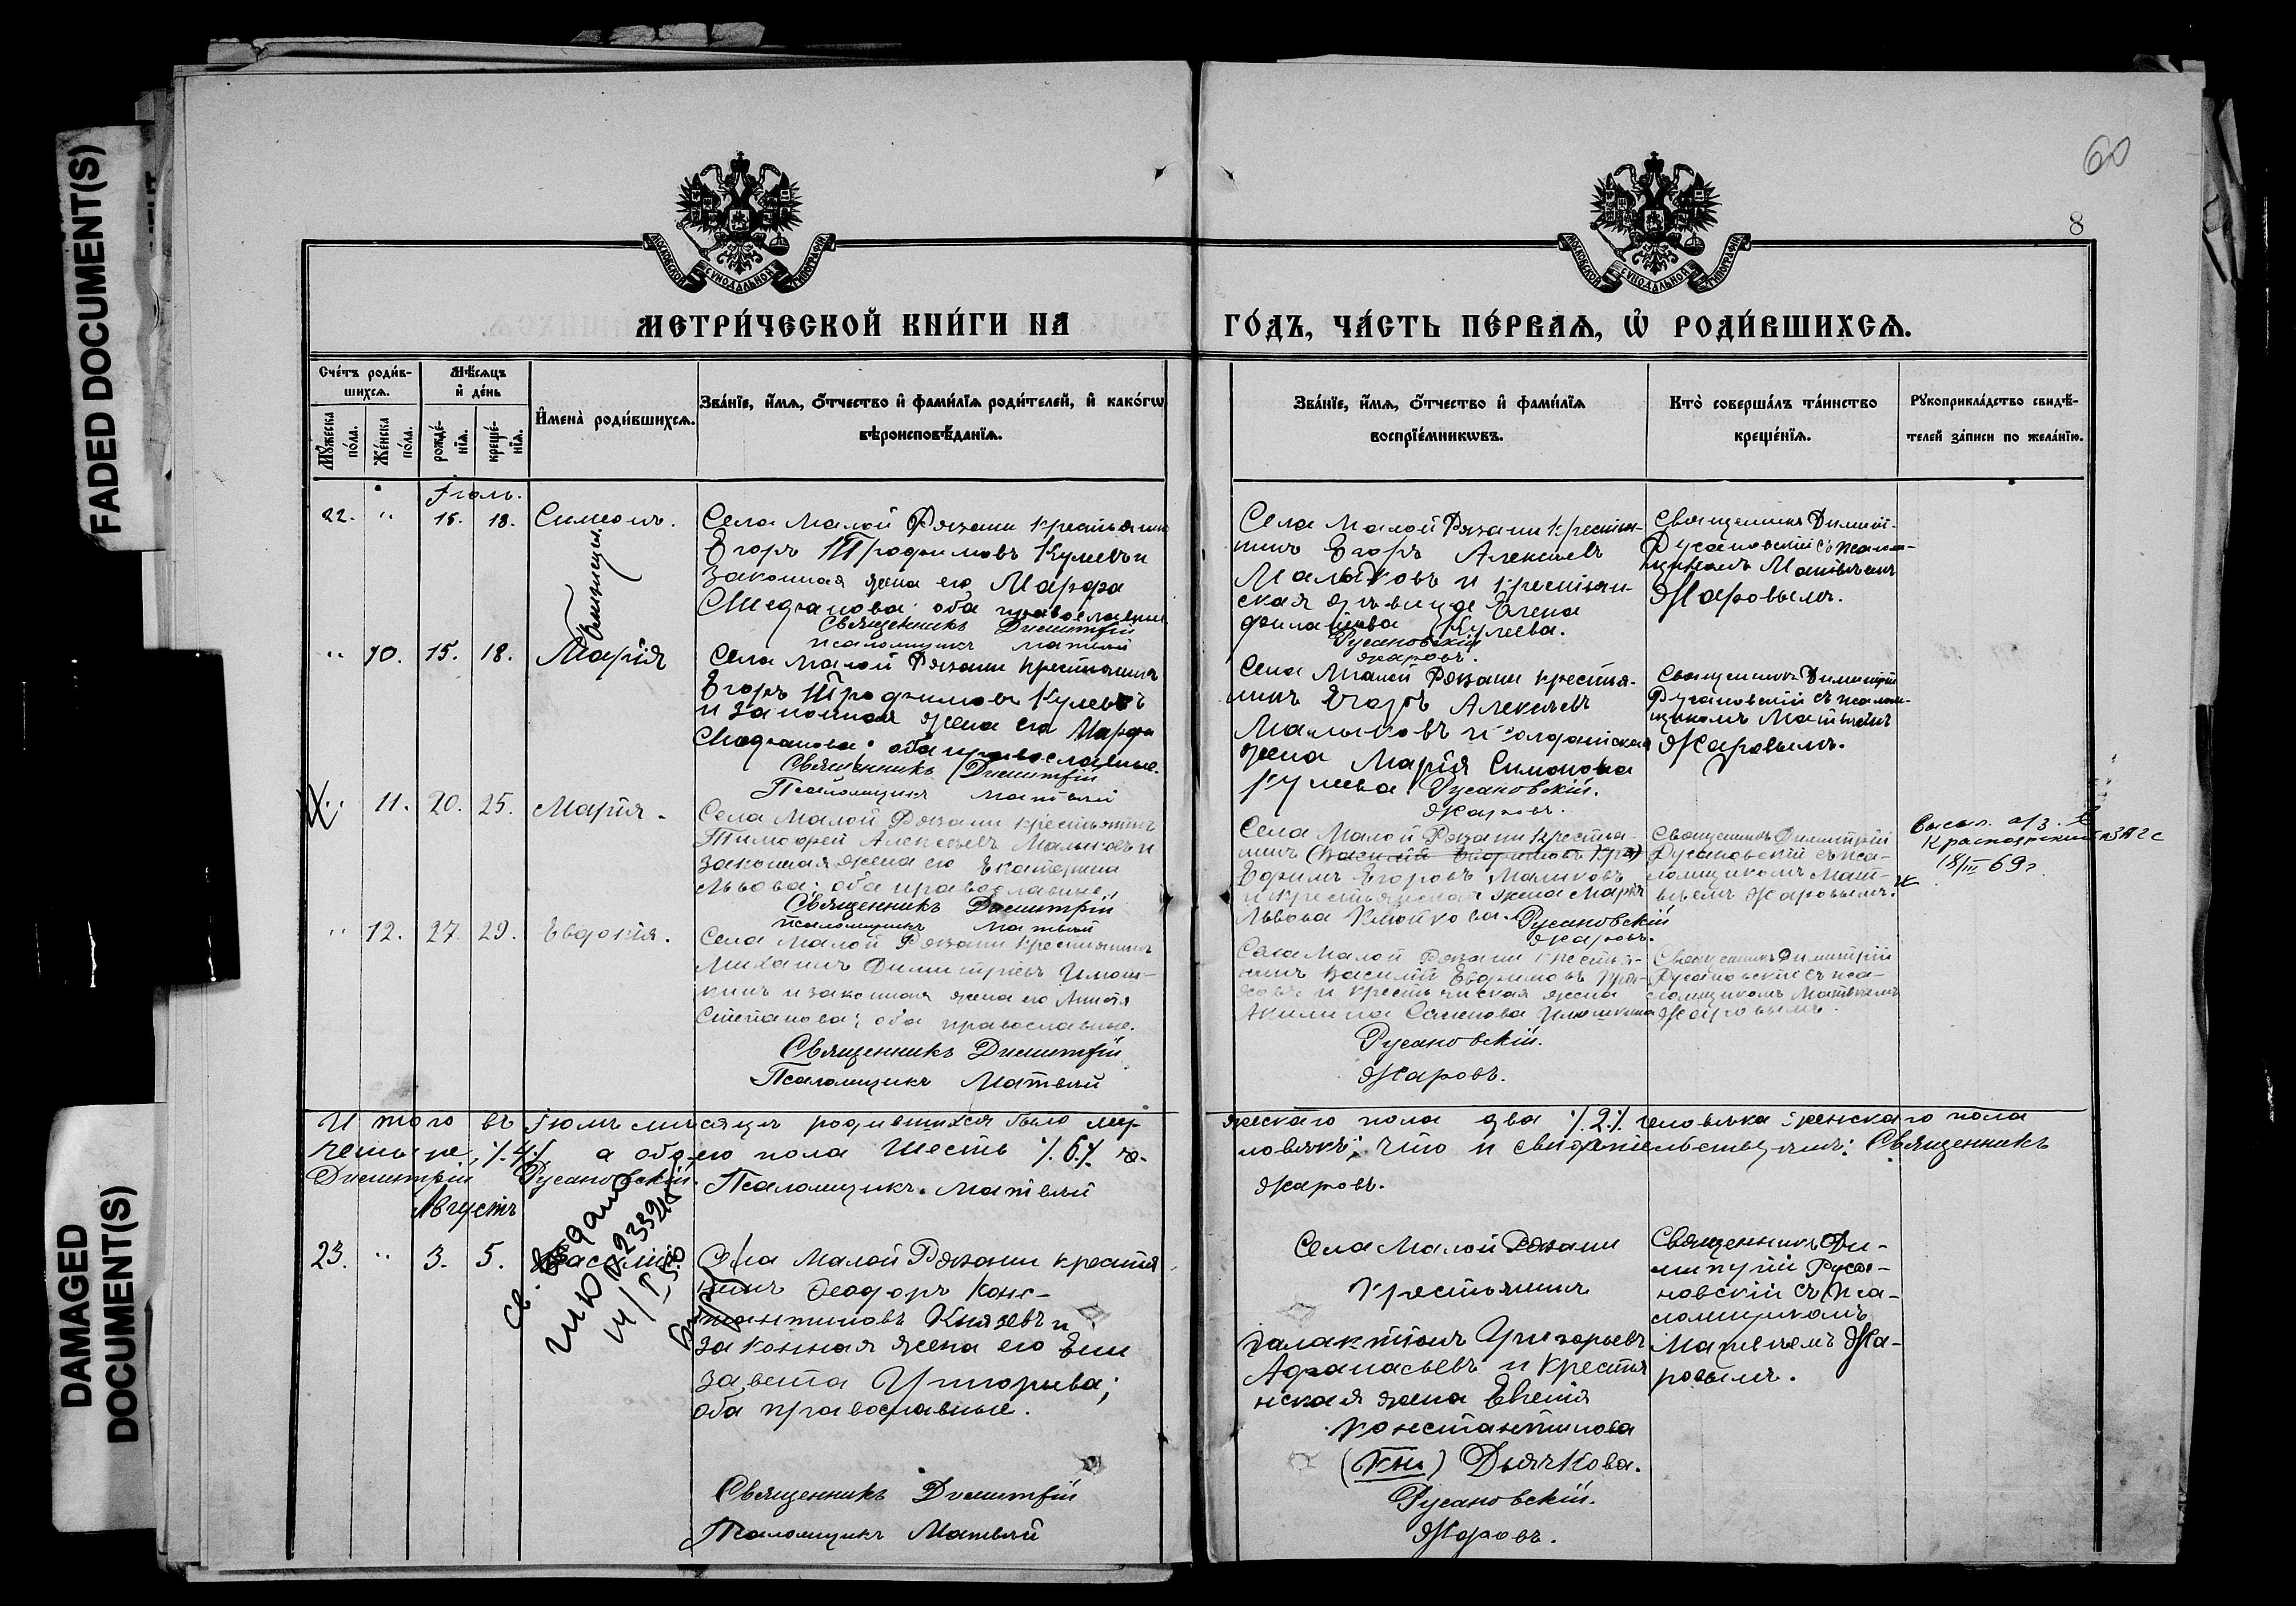 FADED DOCUMENT(S)
DAMAGED
DOCUMENT(S)
60
8
МОСКОВСКОЙ СѴНОДАЛЬНОЙ ТИПОГРАФІИ
МОСКОВСКОЙ СѴНОДАЛЬНОЙ ТИПОГРАФІИ
МЕТРИ́ЧЕСКОЙ КНИ́ГИ НА
ГО́ДЪ, ЧА́СТЬ ПЕ́РВАѦ, Ѡ҆ РОДИ́ВШИХСѦ.
Сче́тъ роди́в-
шихсѧ.
Мꙋ́жеска
по́ла.
Же́нска
по́ла.
Мѣ́сѧцъ
и҆ де́нь
рожде́-
нїѧ.
креще́-
нїѧ.
И҆мена̀ роди́вшихсѧ.
Зва́нїе, и҆́мѧ, ѻ҆́тчество и҆ фами́лїѧ роди́телей, и҆ како́гѡ
вѣроисповѣ́данїѧ.
Зва́нїе, и҆́мѧ, ѻ҆́тчество и҆ фами́лїѧ
воспрїе́мникѡвъ.
Кто̀ соверша́лъ та́инство
креще́нїѧ.
Рꙋкоприкла́дство свидѣ́-
телей за́писи по жела́нїю.
Іюль.
22. " 15. 18. Симеонъ.
Села Малой Рязани крестьянинъ
Егоръ Трофимовъ Кулевъ и
законная жена его Марфа
Стефанова; оба православные
Священникъ Димитрій
псаломщикъ Матвѣй
Села Малой Рязани крестья-
нинъ Егоръ Алексѣевъ
Малыковъ и крестьян-
ская дѣвица Елена
Кулева.
Русановскій
Жаровъ.
Священникъ Димит-
Русановскій съ псалом-
щикомъ Матвѣемъ
Жаровымъ.
Близнецы
" 10. 15. 18. Марія
Села Малой Рязани крестьянинъ
Егоръ Трофимовъ Кулевъ
и законная жена его Марфа
Стефанова; оба православные.
Священникъ Димитрій
Псаломщикъ Матвѣй
Села Малой Рязани крестья-
нинъ Егоръ Алексѣевъ
Малыковъ и солдатская
жена Марія Симонова
Кулева. Русановскій.
Жаровъ.
Священникъ Димитрій
Русановскій съ псалом-
щикомъ Матвѣемъ
Жаровымъ.
" 11. 20. 25. Марія.
Села Малой Рязани крестьянинъ
Тимофей Алексѣевъ Малыковъ и
законная жена его Екатерина
Львова; оба православные.
Священникъ Димитрій
псаломщикъ Матвѣй
Села Малой Рязани крестья-
нинъ (Василій Ефимовъ Кря)
Ефимъ Егоровъ Малыковъ
и крестьянская жена Марія
Львова Русановскій
Жаровъ.
Священникъ Димитрій
Русановскій съ пса-
ломщикомъ Мат-
вѣемъ Жаровымъ.
Красноярский ЗАГС
18/III 69 г
" 12. 27. 29. Евдокія.
Села Малой Рязани крестьянинъ
Михаилъ Димитріевъ Илюш-
кинъ и законная жена его
Степанова; оба православные.
Священникъ Димитрій
Псаломщикъ Матвѣй
Села Малой Рязани крестья-
нинъ Василій Ефимовъ
и крестьянская жена
Акилина Семенова Илюшкина
Русановскій.
Жаровъ.
Священникъ Димитрій
Русановскій съ пса-
ломщикомъ Матвѣемъ
Жаровымъ.
Итого въ Іюлѣ мѣсяцѣ родившихся было му-
жескаго пола два %2.% человѣка женскаго пола
четыре, %4.% а обоего пола шесть %6.% че-
ловѣкъ; что и свидѣтельствуемъ: Священникъ
Димитрій Русановскій. Псаломщикъ Матвѣй
Жаровъ.
Августъ
23. " 3. 5. Василій
Села Малой Рязани крестья
нинъ Ѳеодоръ Конс-
тантиновъ Князевъ и
законная жена его Ели
завета Григорьева;
оба православные.
Священникъ Димитрій
Псаломщикъ Матвѣй
Села Малой Рязани
крестьянинъ
Галактіонъ Григорьевъ
Афанасьевъ и крестья
нская жена Евгенія
Константинова
(Кн.) Дьячкова.
Русановскій.
Жаровъ.
Священникъ Ди-
митрій Руса-
новскій съ пса-
ломщикомъ
Матвѣемъ Жа-
ровымъ.